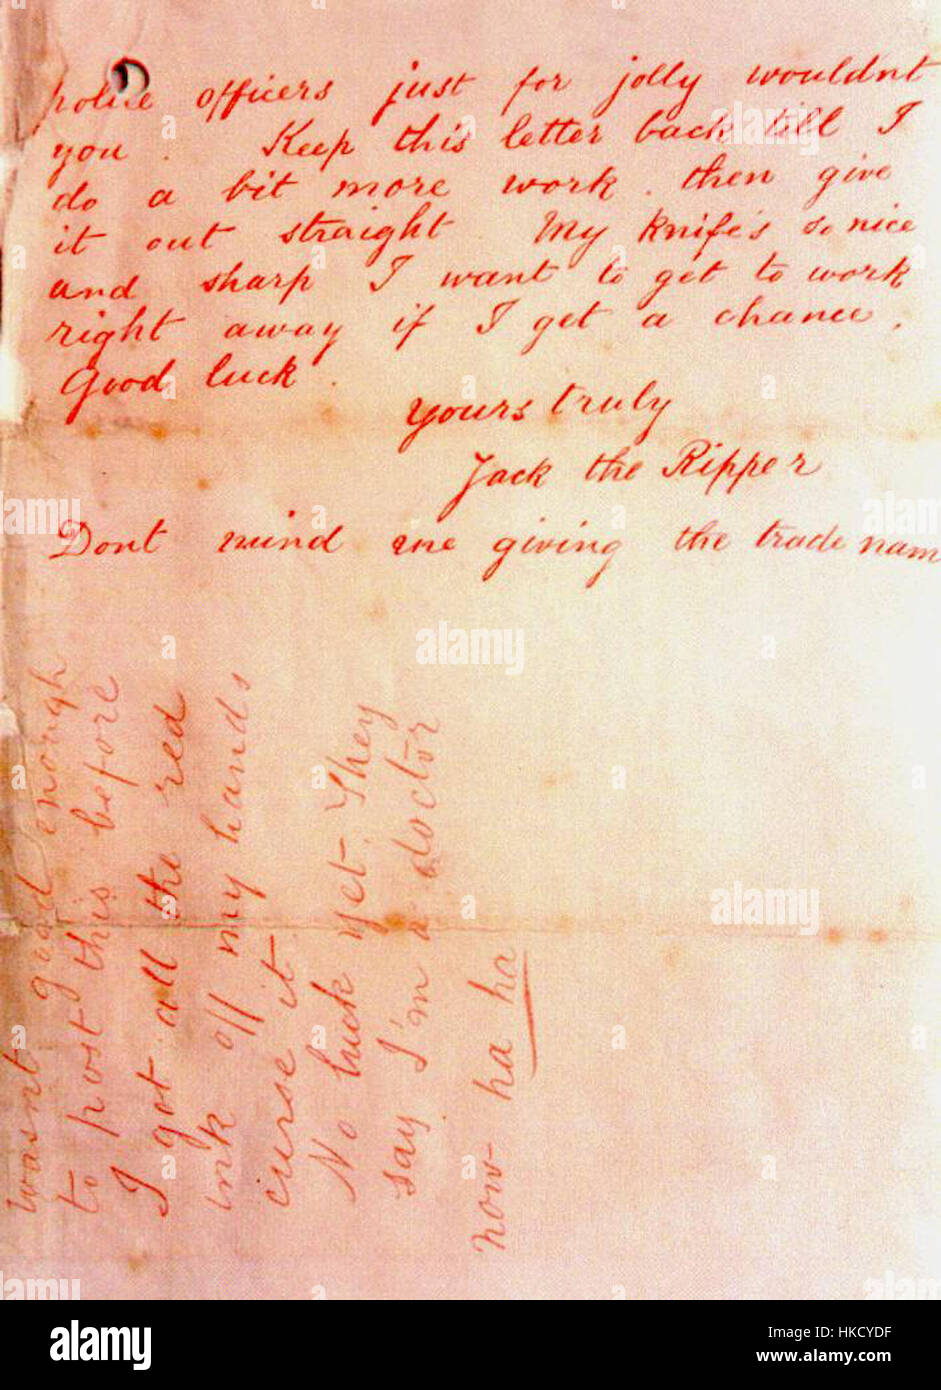 police officers just for jolly wouldnt
you. Keep this letter back till I
do a bit more work. then give
it out straight. My knife's so nice
and sharp I want to get to work
right away if I get a chance.
Good luck.
Yours truly
Jack the Ripper
Dont mind me giving the trade nam
wasnt good enough
to post this before
I got all the red
ink off my hands
curse it.
No luck yet. They
say I'm a doctor
now ha ha
alamy
alamy
Image ID: HKCYDF
www.alamy.com